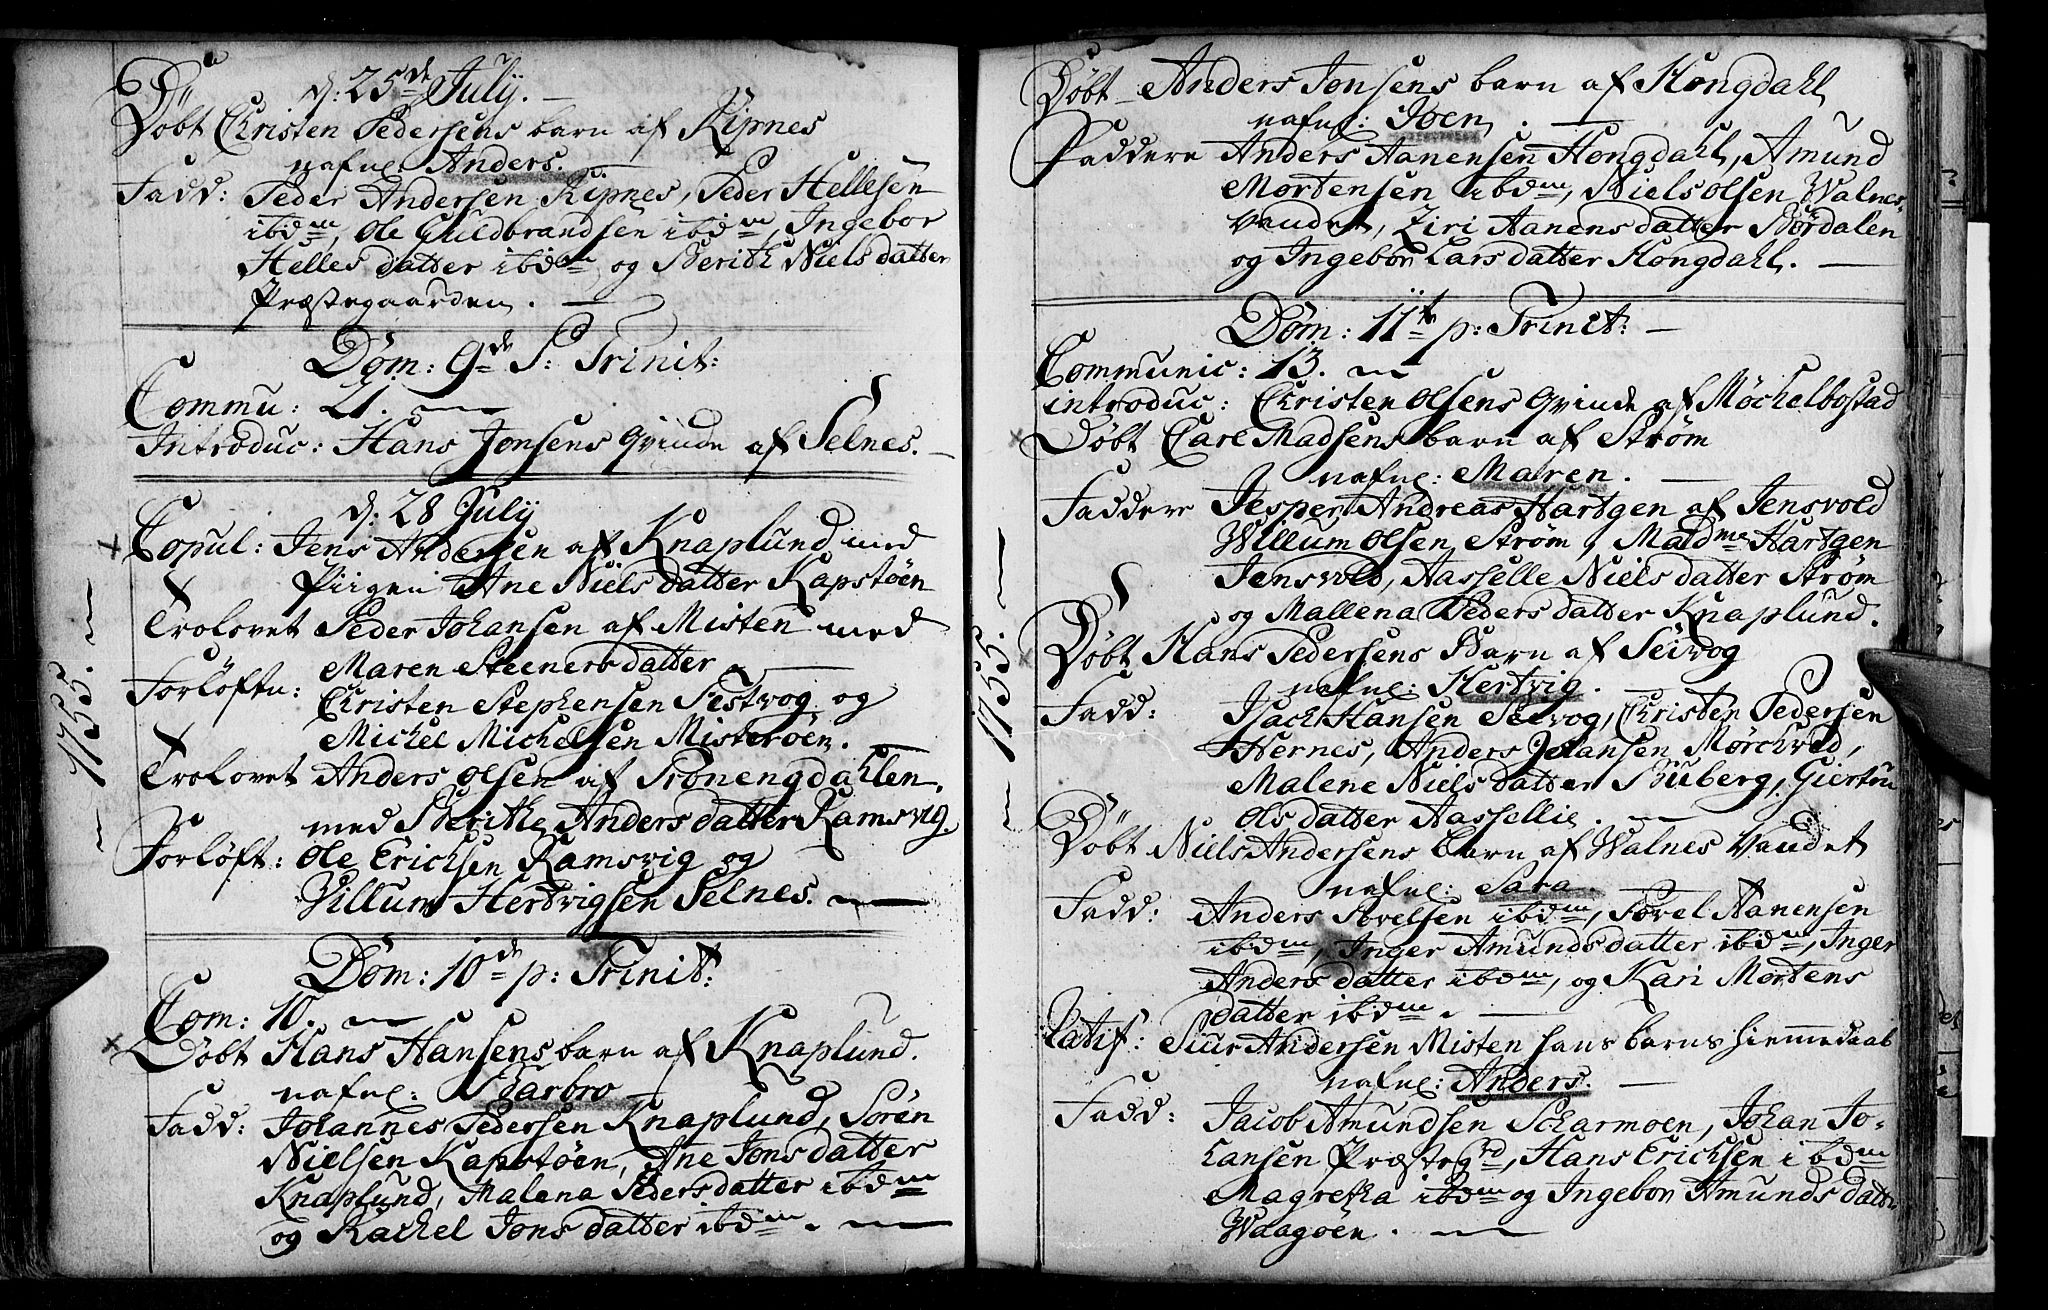 1755.
d: 25de July.
Døbt Christen Pedersens barn af Kipnes
nafnl: Anders.
Fadd: Peder Andersen Kipnes, Peder Hellesen
ibdm, Ole Guldbrandsen ibidm, Ingebor
Helles datter ibdm og Berith Niels datter
Præstegaarden.
Dom: 9de P: Trinit:
Commu: 21.
Introduc: Hans Jonsens Qvinde af Selnes.
d: 28 July
Copul: Jens Andersen af Knaplund med
Piigen Ane Niels datter Kapstøen
Trolovet Peder Johansen af Misten med
Maren Steeners datter
Forløftn: Christen Stephensen Festvog og
Michel Michelsen Misterøen.
Trolovet Anders Olsen af Tronengdahlen
med Berithe Anders datter Ramsvig.
Forløft: Ole Erichsen Ramsvig og
Villum Hertvigsen Selnes.
Dom: 10de p: Trinit:
Com: 10.
Døbt Hans Hansens barn af Knaplund.
nafnl: Barbro
Fadd: Johannes Pedersen Knaplund, Sørén
Nielsen Kapstøen, Ane Jons datter
Knaplund, Malena Peders datter ibdm
og Rachel Jons datter ibdm.
1755.
Døbt Anders Jonsens barn af Hongdahl
nafnl: Joen.
Faddere Anders Aanensen Hongdahl, Amund
Mortensen ibdm, Niels Olsen Walnes-
vandet, Ziri Aanens datter Børdalen
og Ingebor Lars datter Hongdahl.
Dom: 11te p: Trinit:
Communic: 13.
introduc: Christen Olsens Qvinde af Møchelbostad
Døbt Carl Madsens barn af Strøm
nafnl: Maren.
Faddere Jesper Andreas Hartgen af Jensvold
Willum Olsen Strøm, Madme Hartgen
Jensvold, Aasselle Niels datter Strøm
og Mallena Peders datter Knaplund.
Døbt Hans Pedersens Barn af Seivog
nafnl: Hertvig.
Fadd: Isach Hansen Seivog, Christen Pedersen
Hernes, Anders Johansen Mørchved,
Malene Niels datter Buberg, Giertru
Ols datter Aassellie.
Døbt Niels Andersens Barn af Walnes Vandet
nafnl: Sara.
Fadd: Anders Povelsen ibdm, Povel Aanensen
ibidm, Inger Amunds datter ibdm, Inger
Anders datter ibdm, og Kari Mortens
datter ibdm.
Ratif: Siur Andersen Misten hans barns hiemmedaab
nafnl: Anders.
Fadd: Jacob Amundsen Scharmoen, Johan Jo-
hansen Præstegrd, Hans Erichsen ibdm
Magretha ibdm og Ingebor Amunds datter
Waagøen.